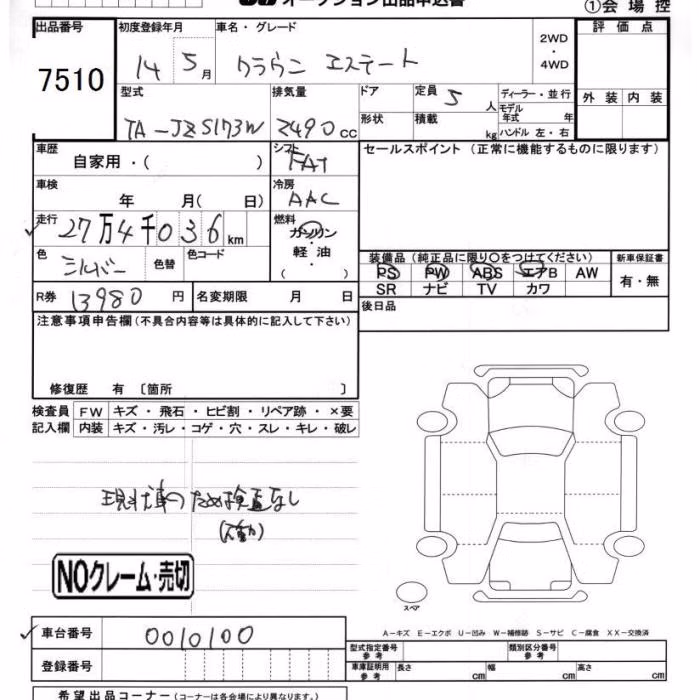 オークション出品申込書
①会場控
出品番号
7510
初度登録年月
14 5月
車名・グレード
クラウン エステート
2WD
・
4WD
評価点
外装 内装
型式
TA-JZS173W
排気量
2490cc
ドア
形状
定員 5人
積載 kg
ディーラー・並行
モデル年式 年
ハンドル 左・右
車歴
自家用・( )
シフト
FAT
車検
年 月( 日)
冷房
AAC
走行
27万4千036km
燃料
ガソリン
軽油
( )
色
シルバー
色替
色コード
R券 13980円
名変期限 月 日
セールスポイント(正常に機能するものに限ります)
装備品(純正品に限り○をつけてください)
PS PW ABS エアB AW
SR ナビ TV カワ
新車保証書
有・無
後日品
注意事項申告欄(不具合内容等は具体的に記入して下さい)
修復歴 有 〔箇所 〕
検査員 FW キズ・飛石・ヒビ割・リペア跡・×要
記入欄 内装 キズ・汚レ・コゲ・穴・スレ・キレ・破レ
現状車のため検査なし
(不動)
NOクレーム・売切
スペア
A-キズ E-エクボ U-凹み W-補修跡 S-サビ C-腐食 XX-交換済
車台番号 0010100
登録番号
型式指定番号 参考
類別区分番号 参考
車庫証明用 参考
長さ cm 幅 cm 高さ cm
希望出品コーナー(コーナーは各会場により異なります)